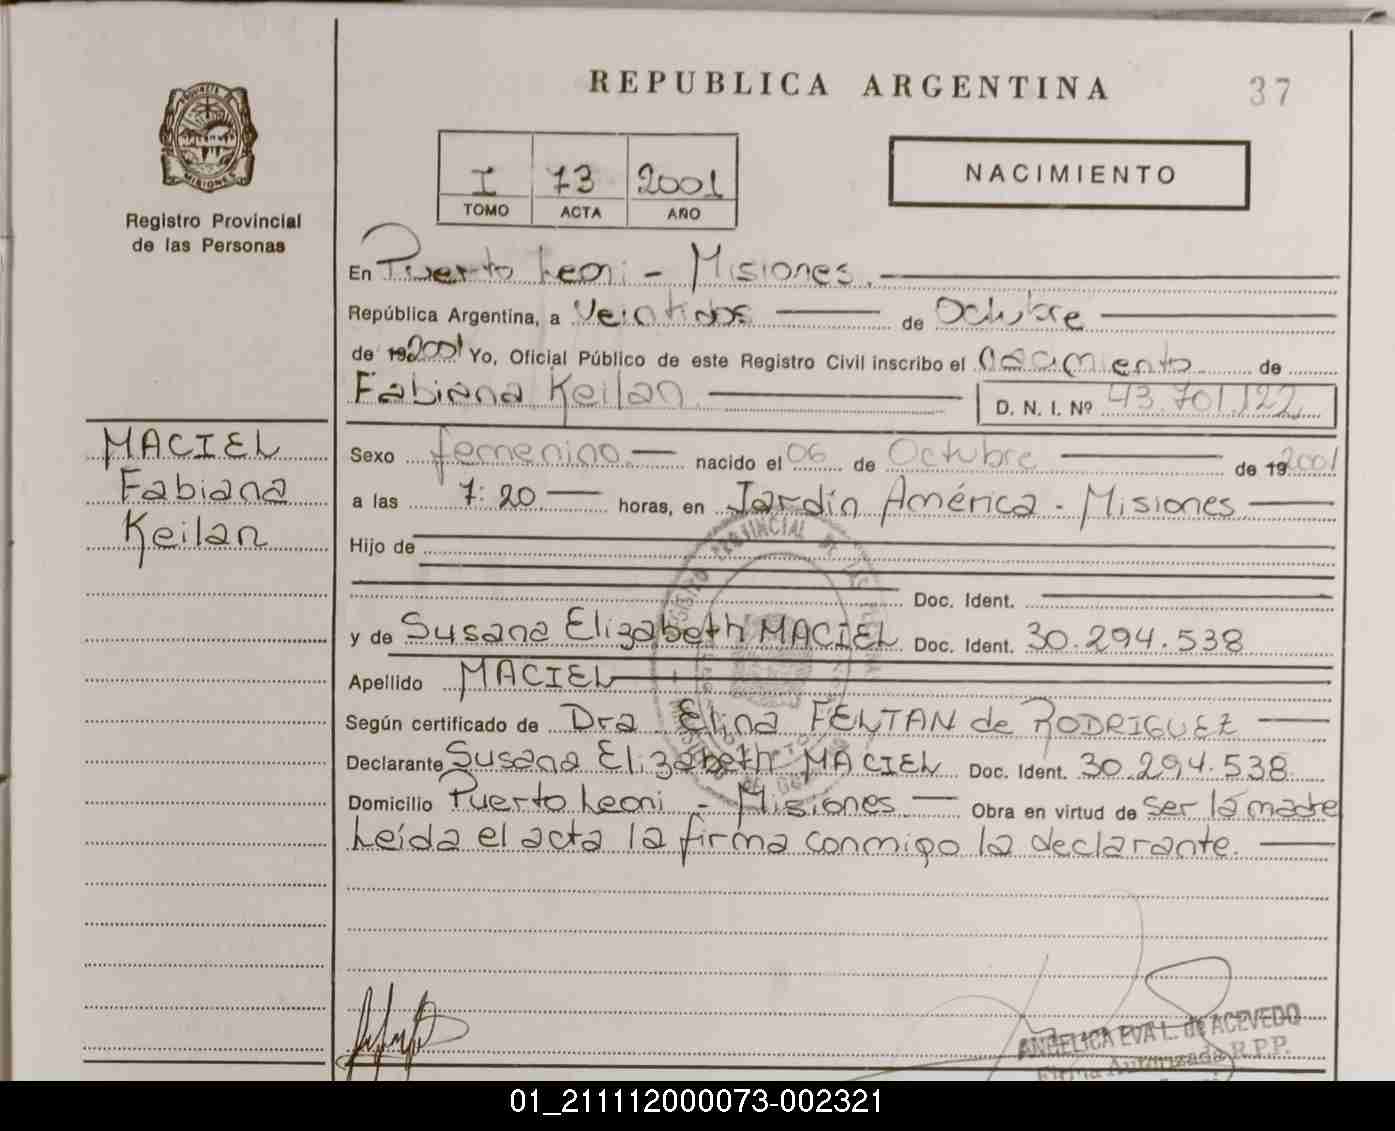 REPUBLICA ARGENTINA
37
PROVINCIA DE
MISIONES
Registro Provincial
de las Personas
I 73 2001
TOMO ACTA AÑO
NACIMIENTO
En Puerto Leoni - Misiones.
República Argentina, a Veintidos de Octubre
de 192001 Yo, Oficial Público de este Registro Civil inscribo el nacimiento de
Fabiana Keilan D. N. I. Nº 43.701.122
MACIEL
Fabiana
Keilan
Sexo femenino. nacido el 06 de Octubre de 192001
a las 7:20 horas, en Jardín América - Misiones
Hijo de
Doc. Ident.
y de Susana Elizabeth MACIEL Doc. Ident. 30.294.538
Apellido MACIEL
Según certificado de Dra Elina FELTAN de RODRIGUEZ
Declarante Susana Elizabeth MACIEL Doc. Ident. 30.294.538
Domicilio Puerto Leoni - Misiones Obra en virtud de ser la madre
Leída el acta la firma conmigo la declarante.
ANGELICA EVA L. de ACEVEDO
Firma Autorizada R.P.P.
01_211112000073-002321